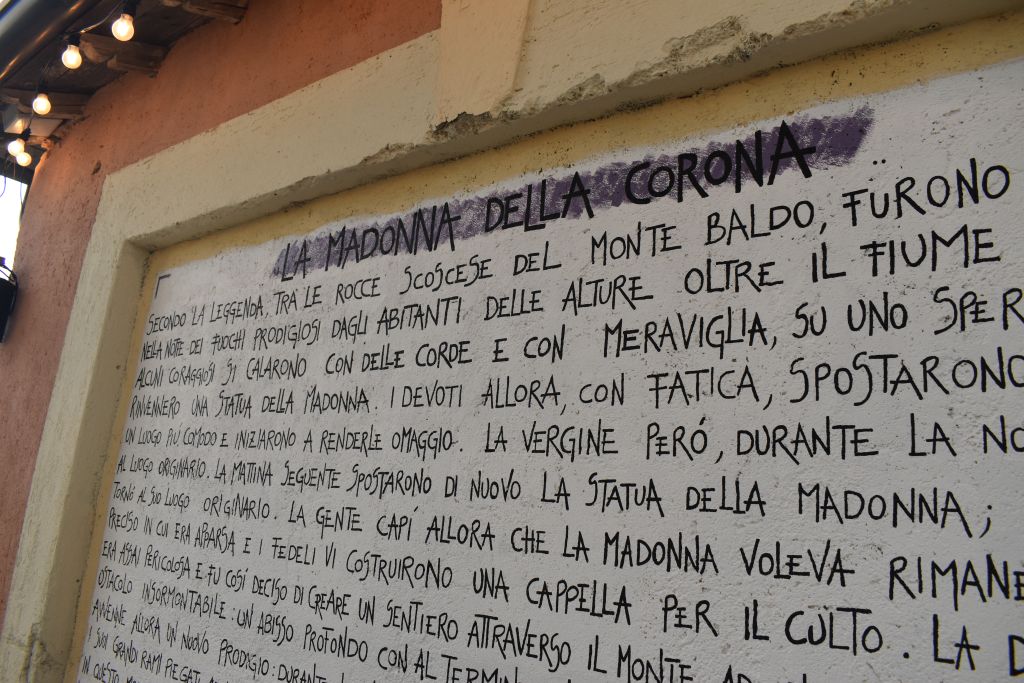 LA MADONNA DELLA CORONA
SECONDO LA LEGGENDA, TRA LE ROCCE SCOSCESE DEL MONTE BALDO, FURONO
NELLA NOTTE DEI FUOCHI PRODIGIOSI DAGLI ABITANTI DELLE ALTURE OLTRE IL FIUME
ALCUNI CORAGGIOSI SI CALARONO CON DELLE CORDE E CON MERAVIGLIA, SU UNO SPER
RINVENNERO UNA STATUA DELLA MADONNA. I DEVOTI ALLORA, CON FATICA, SPOSTARONO
UN LUOGO PIÚ COMODO E INIZIARONO A RENDERLE OMAGGIO. LA VERGINE PERÓ, DURANTE LA NO
AL LUOGO ORIGINARIO. LA MATTINA SEGUENTE SPOSTARONO DI NUOVO LA STATUA DELLA MADONNA;
TORNÓ AL SUO LUOGO ORIGINARIO. LA GENTE CAPÍ ALLORA CHE LA MADONNA VOLEVA RIMANE
PRECISO IN CUI ERA APPARSA E I FEDELI VI COSTRUIRONO UNA CAPPELLA PER IL CULTO. LA D
ERA ASSAI PERICOLOSA E FU COSÍ DECISO DI CREARE UN SENTIERO ATTRAVERSO IL MONTE
OSTACOLO INSORMONTABILE: UN ABISSO PROFONDO CON AL TERMIN
AVVENNE ALLORA UN NUOVO PRODIGIO: DURANTE
I SUOI GRANDI RAMI PIEGATI
IN QUESTO